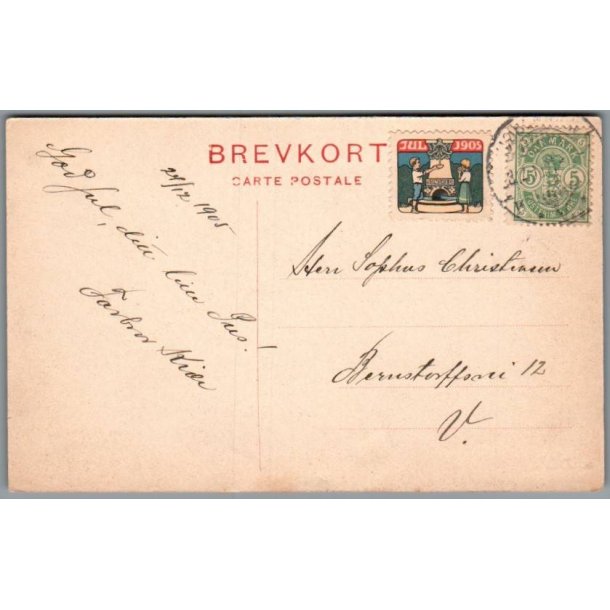 BREVKORT
CARTE POSTALE
JUL 1905
DANMARK
5 5
24/12 1905
God Jul, din lille Pus!
Farbror Kiær
Herr Sophus Christensen
Bernstorffsvei 12
V.